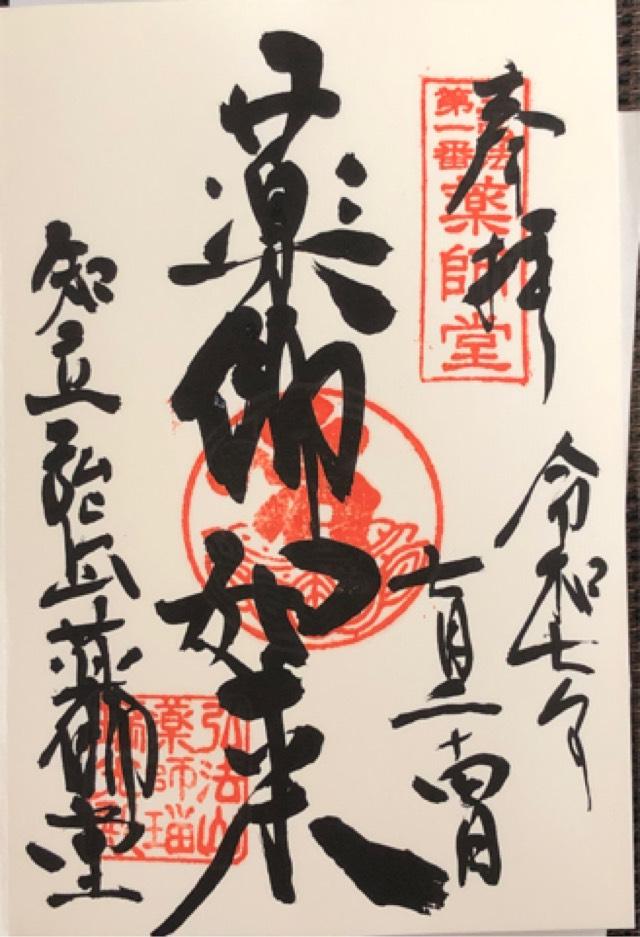 奉拝
第一番
薬師堂
令和七年
七月二十四日
薬師如来
知立弘法山薬師堂
弘法山
薬師瑠